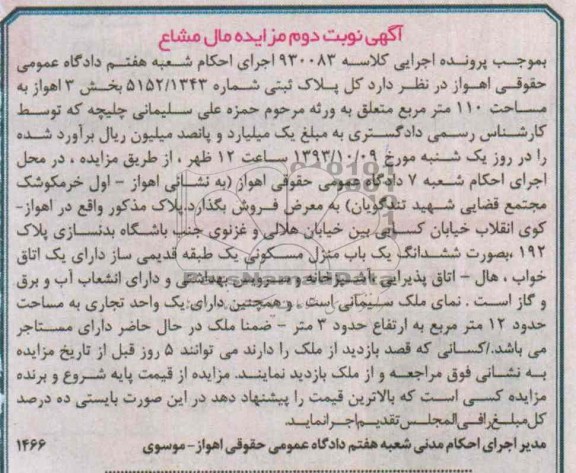 آگهی نوبت دوم مزایده مال مشاع
بموجب پرونده اجرایی کلاسه ۹۳۰۰۸۳ اجرای احکام شعبه هفتم دادگاه عمومی
حقوقی اهواز در نظر دارد کل پلاک ثبتی شماره ۵۱۵۲/۱۳۴۳ بخش ۳ اهواز به
مساحت ۱۱۰ متر مربع متعلق به ورثه مرحوم حمزه علی سلیمانی چلیچه که توسط
کارشناس رسمی دادگستری به مبلغ یک میلیارد و پانصد میلیون ریال برآورد شده
را در روز یک شنبه مورخ ۱۳۹۳/۱۰/۰۹ ساعت ۱۲ ظهر ، از طریق مزایده ، در محل
اجرای احکام شعبه ۷ دادگاه عمومی حقوقی اهواز (به نشانی اهواز - اول خرمکوشک
مجتمع قضایی شهید تندگویان) به معرض فروش بگذارد.پلاک مذکور واقع در اهواز-
کوی انقلاب خیابان کسایی بین خیابان هلالی و غزنوی جنب باشگاه بدنسازی پلاک
۱۹۲ ،بصورت ششدانگ یک باب منزل مسکونی یک طبقه قدیمی ساز دارای یک اتاق
خواب ، هال - اتاق پذیرایی آشپزخانه و سرویس بهداشتی و دارای انشعاب آب و برق
و گاز است . نمای ملک سیمانی است . و همچنین دارای یک واحد تجاری به مساحت
حدود ۱۲ متر مربع به ارتفاع حدود ۳ متر - ضمنا ملک در حال حاضر دارای مستاجر
می باشد./کسانی که قصد بازدید از ملک را دارند می توانند ۵ روز قبل از تاریخ مزایده
به نشانی فوق مراجعه و از ملک بازدید نمایند. مزایده از قیمت پایه شروع و برنده
مزایده کسی است که بالاترین قیمت را پیشنهاد دهد در این صورت بایستی ده درصد
کل مبلغ را فی المجلس تقدیم اجرا نماید.
مدیر اجرای احکام مدنی شعبه هفتم دادگاه عمومی حقوقی اهواز- موسوی ۱۴۶۶